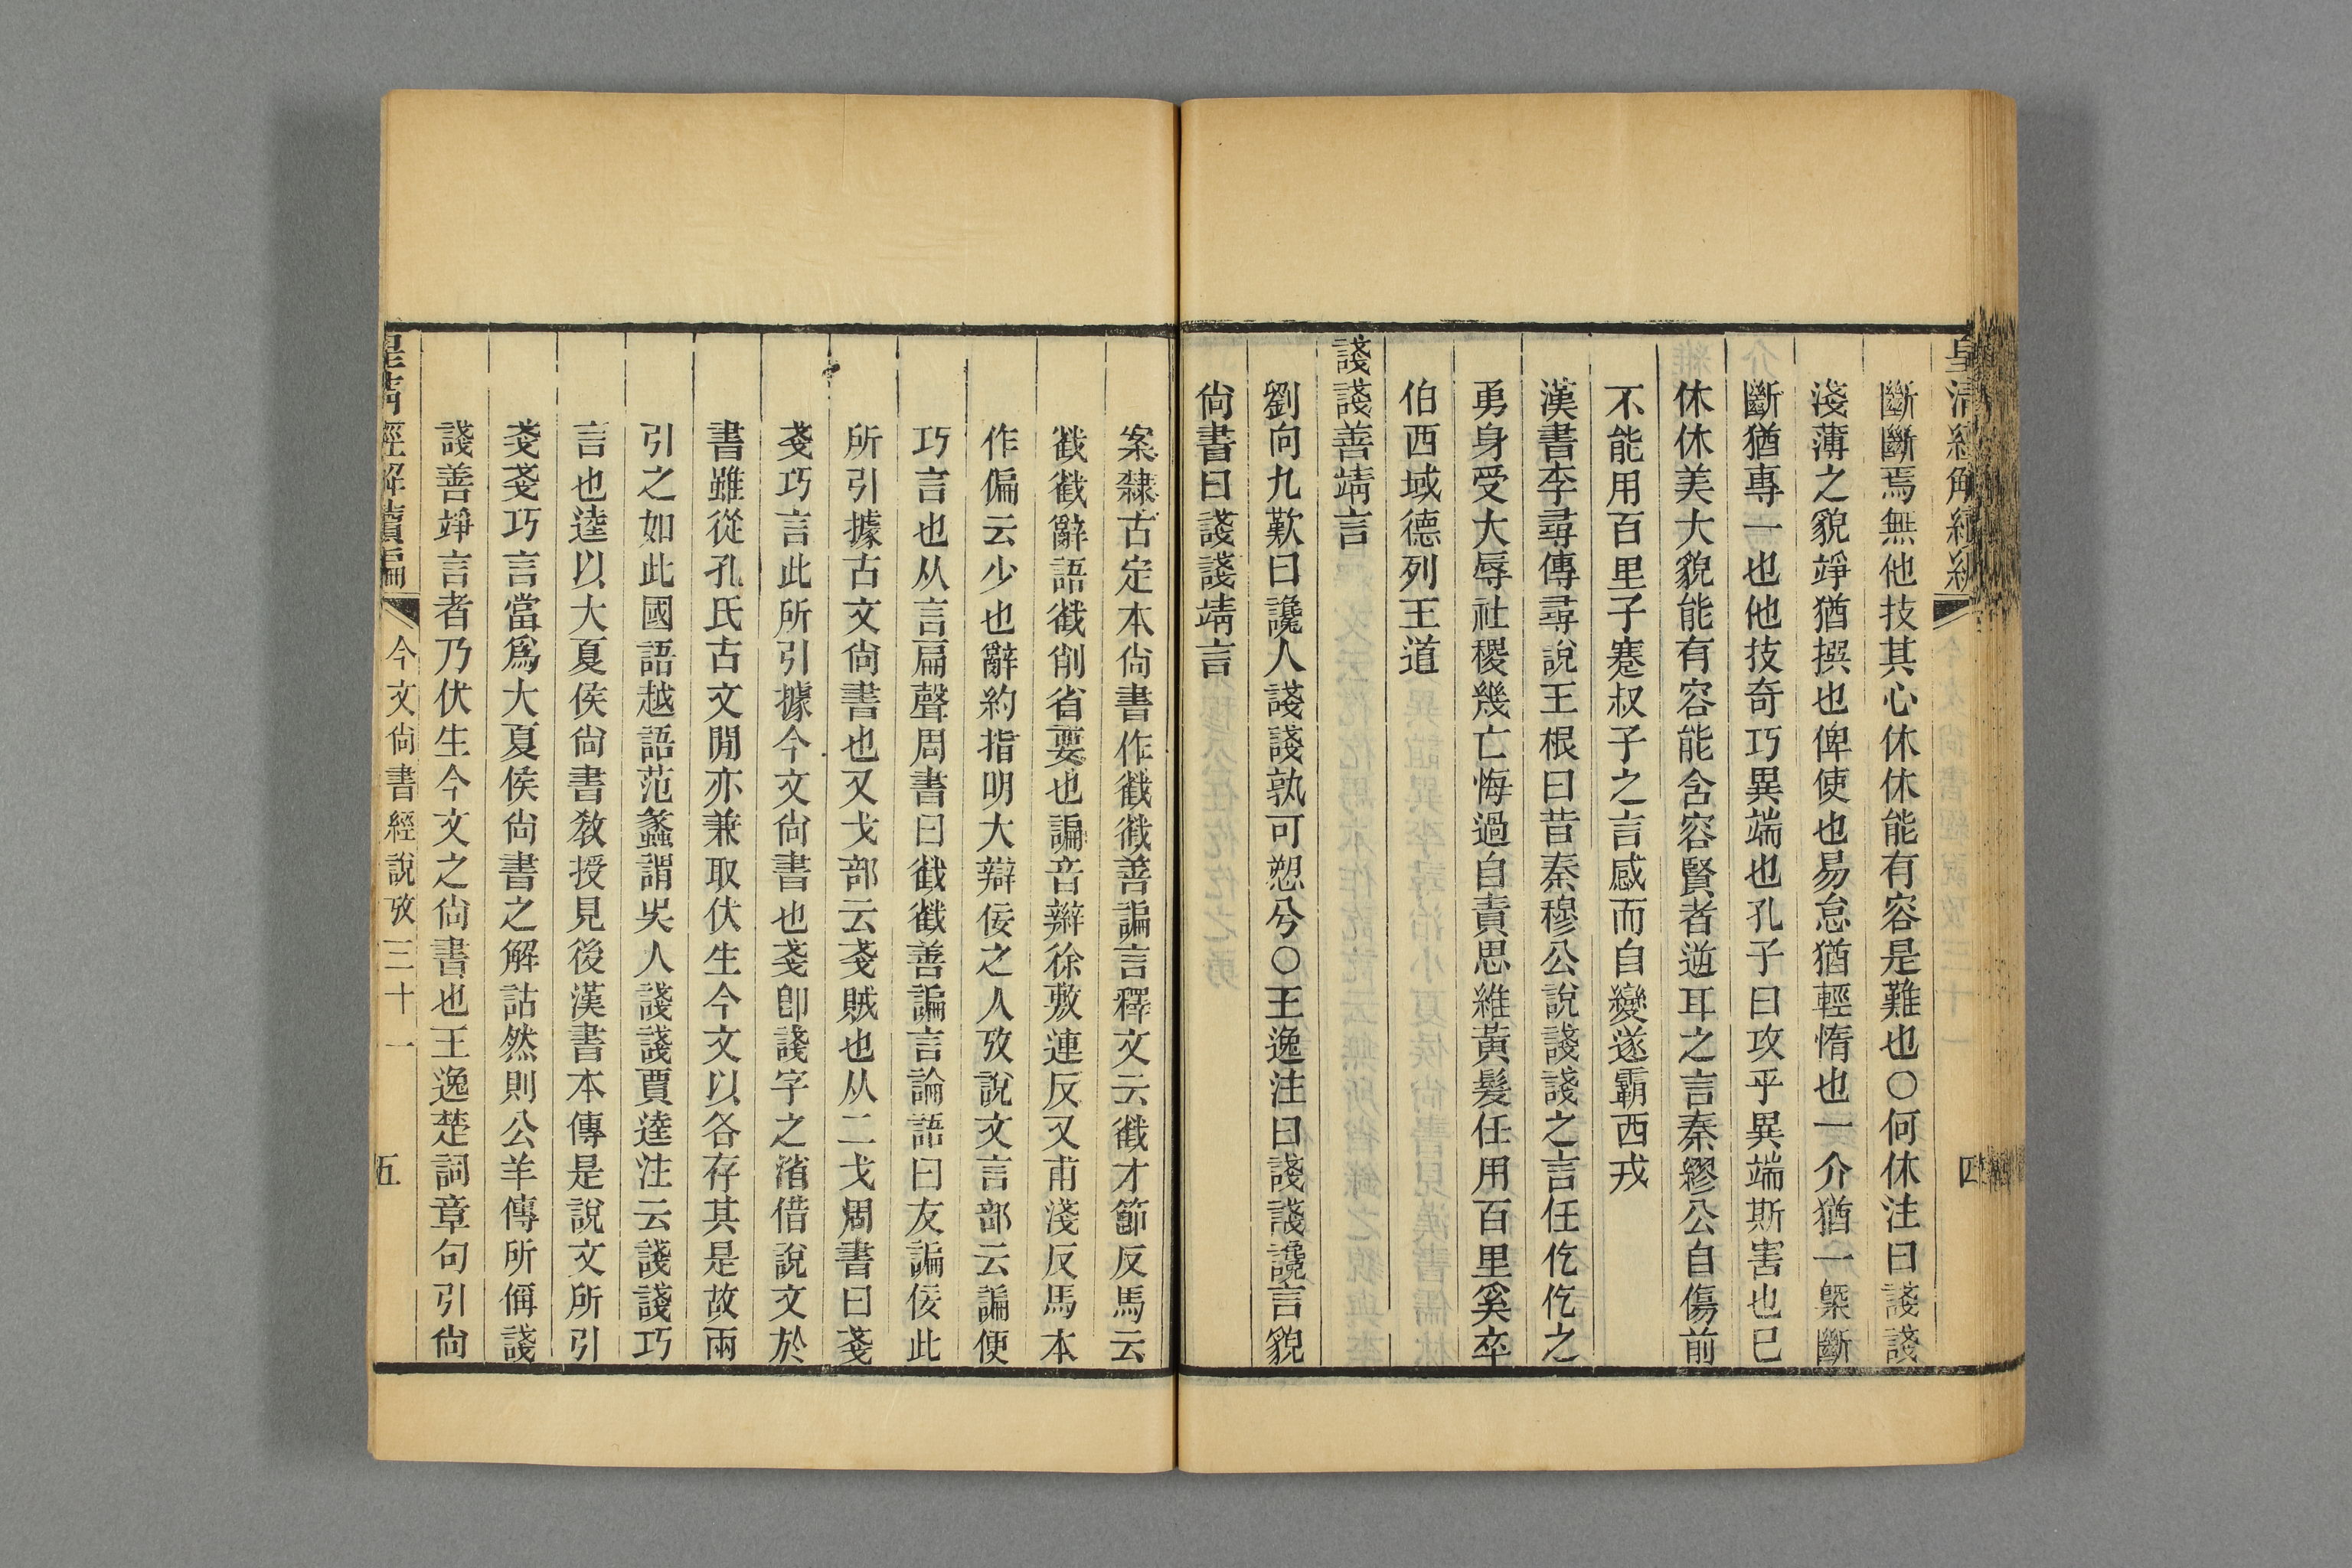 斷斷焉無他技其心休休能有容是難也〇何休注曰諓諓
淺薄之貌竫猶撰也俾使也易怠猶輕惰也一介猶一槩斷
斷猶專一也他技奇巧異端也孔子曰攻乎異端斯害也已
休休美大貌能有容能含容賢者逆耳之言秦繆公自傷前
不能用百里子蹇叔子之言感而自變遂霸西戎
漢書李尋傳尋說王根曰昔秦穆公說諓諓之言任仡仡之
勇身受大辱社稷幾亡悔過自責思維黃髮任用百里奚卒
伯西域德列王道
諓諓善靖言
劉向九歎曰讒人諓諓孰可愬兮〇王逸注曰諓諓讒言貌
尙書曰諓諓靖言
案隸古定本尙書作戳戳善諞言釋文云戳才節反馬云
戳戳辭語戳削省要也諞音辯徐敷連反又甫淺反馬本
作偏云少也辭約指明大辯佞之人攷說文言部云諞便
巧言也从言扁聲周書曰戳戳善諞言論語曰友諞佞此
所引據古文尙書也又戈部云戔賊也从二戈周書曰戔
戔巧言此所引據今文尙書也戔卽諓字之渻借說文於
書雖從孔氏古文閒亦兼取伏生今文以各存其是故兩
引之如此國語越語范蠡謂吳人諓諓賈逵注云諓諓巧
言也逵以大夏侯尙書敎授見後漢書本傳是說文所引
戔戔巧言當爲大夏侯尙書之解詁然則公羊傳所偁諓
諓善竫言者乃伏生今文之尙書也王逸楚詞章句引尙
皇淸經解續編 今文尙書經說攷三十一 五